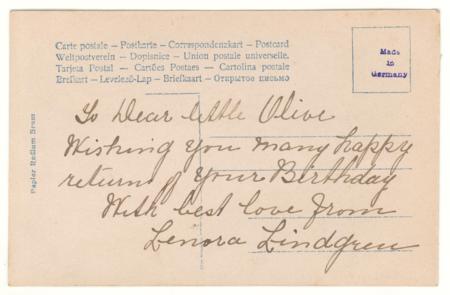 Carte postale – Postkarte – Correspondenzkart – Postcard
Weltpostverein – Dopisnice – Union postale universelle.
Tarjeta Postal – Cartões Postaes – Cartolina postale
Brefkart – Levelező-Lap – Briefkaart – Открытое письмо
Made
in
Germany
Papier Radium Brom
To Dear little Olive
Wishing you many happy
return of Your Birthday
With best love from
Lenora Lindgren